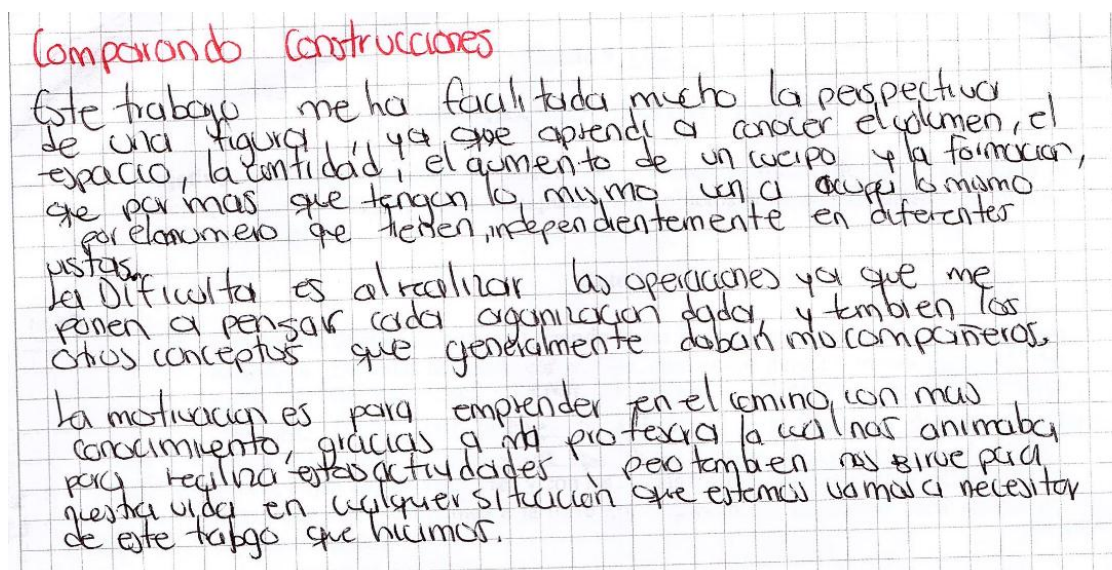 Comparando Construcciones
Este trabajo me ha facilitada mucho la perspectiva
de una figura, ya que aprendi a conocer el volumen, el
espacio, la cantidad, el aumento de un cuerpo y la formacion,
que por mas que tengan lo mismo un a ocupa lo mismo
por el numero que tienen, independientemente en diferentes
vistas.
La Dificulta es al realizar las operaciones ya que me
ponen a pensar cada organizacion dada, y tambien los
otros conceptos que generalmente daban mis compañeros.
La motivacion es para emprender en el camino, con mas
conocimiento, gracias a mi profesora la cual nos animaba
para realiza estas actividades, pero tambien nos sirve para
nuestra vida en cualquer situacion que estemos vamos a necesitar
de este trabajo que hicimos.